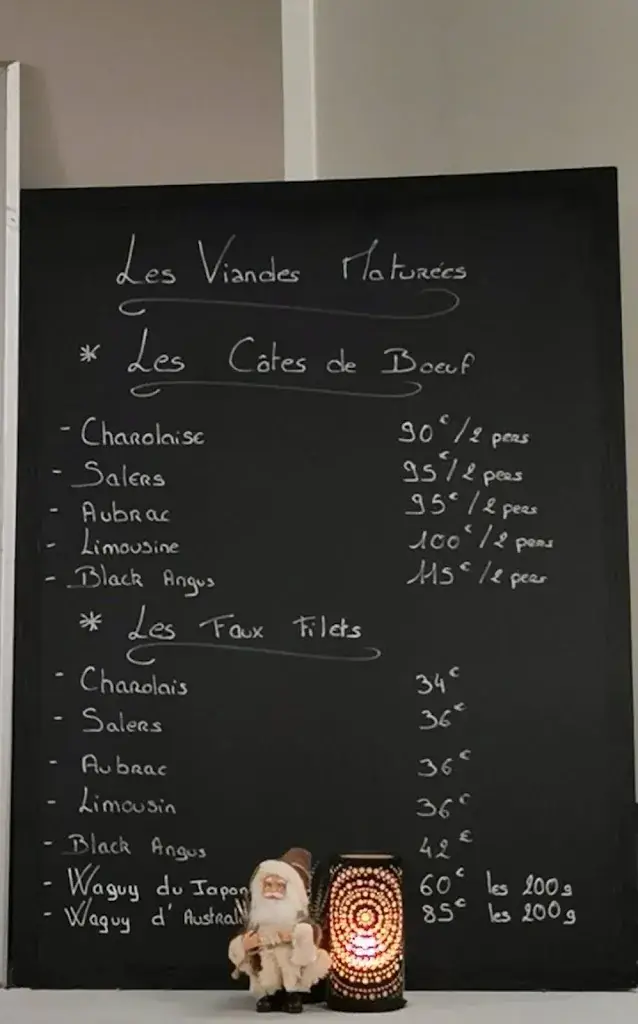 Les Viandes Maturées
* Les Côtes de Boeuf
- Charolaise 90€/2 pers
- Salers 95€/2 pers
- Aubrac 95€/2 pers
- Limousine 100€/2 pers
- Black Angus 115€/2 pers
* Les Faux Filets
- Charolais 34€
- Salers 36€
- Aubrac 36€
- Limousin 36€
- Black Angus 42€
- Waguy du Japon 60€ les 200g
- Waguy d'Austral 85€ les 200g